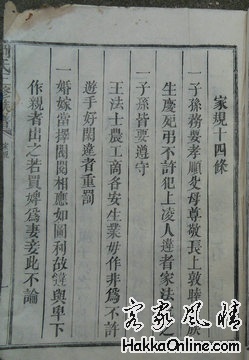 家規十四條
一子孫務要孝順父母尊敬長上敦睦族
生慶死弔不許犯上凌人違者家法
一子孫皆要遵守
王法士農工商各安生業毋作非為不許
遊手好閑違者重罰
一婚嫁當擇閥閱相應如圖利故違與卑下
作親者出之若買婢為妻妾此不論
家規
客家風情
www.HakkaOnline.com